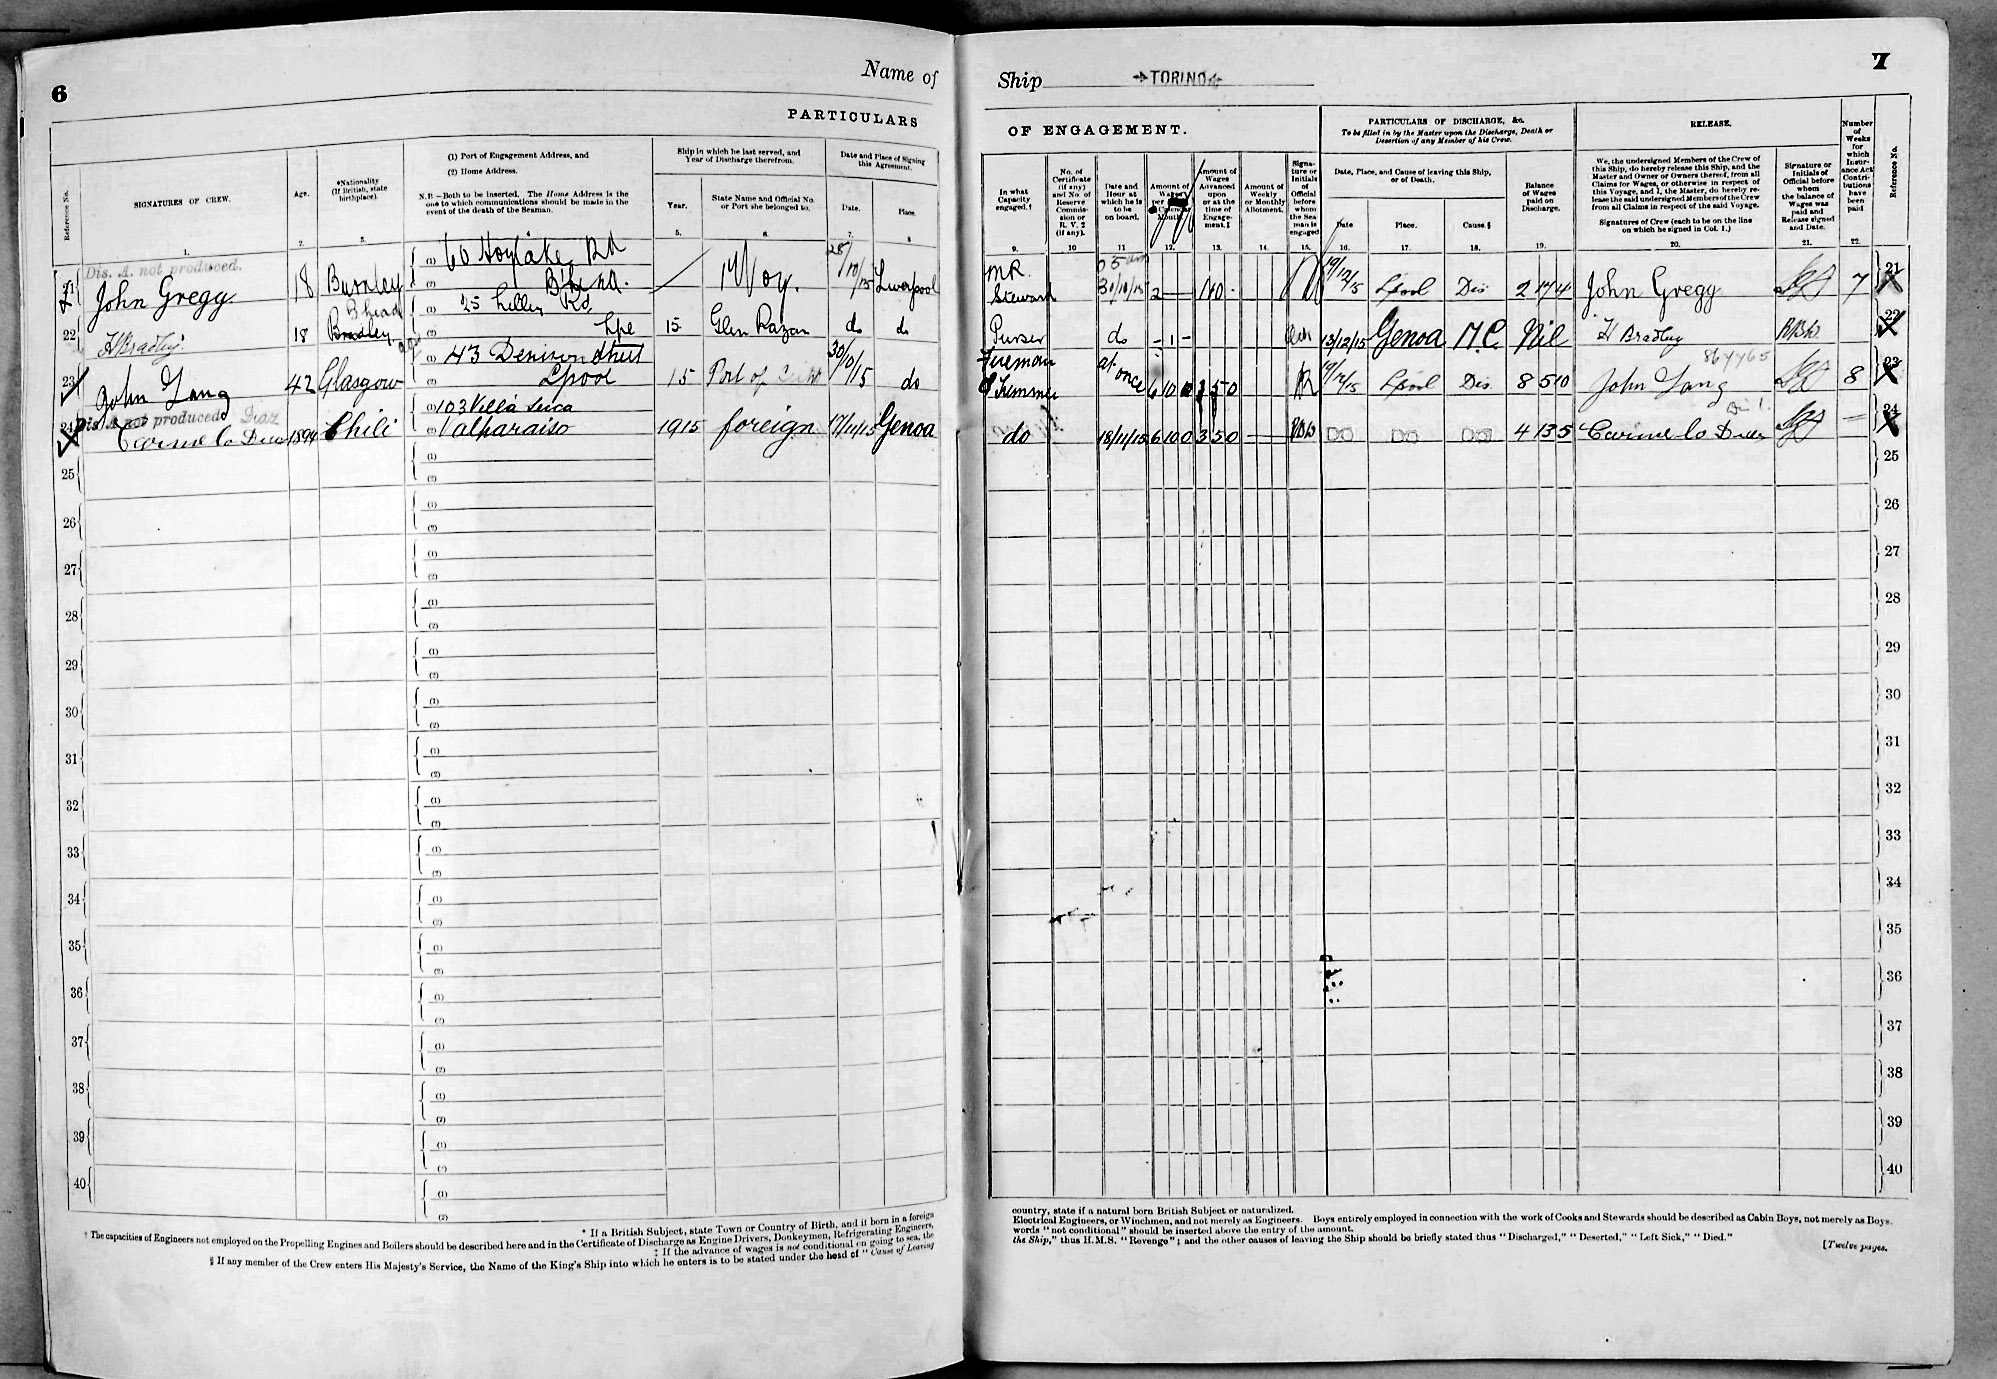 6
Name of
PARTICULARS
Reference No.
SIGNATURES OF CREW.
Age.
*Nationality (If British, state birthplace).
(1) Port of Engagement Address, and
(2) Home Address.
N.B.—Both to be inserted. The Home Address is the one to which communications should be made in the event of the death of the Seaman.
Ship in which he last served, and Year of Discharge therefrom.
Year.
State Name and Official No. or Port she belonged to.
Date and Place of Signing this Agreement.
Date.
Place.
1. 2. 3. 5. 6. 7. 8
Dis. A. not produced.
21 John Gregg 18 Burnley (1) 60 Hoylake Rd (2) B'head. 1st Voy. 28/10/15 Liverpool
22 H Bradley 18 B'head Bradley (1) 25 Rd (2) Lpe 15 Glen do do
23 John Lang 42 Glasgow (1) 43 Denison Street (2) Lpool 15 Port of 30/10/15 do
Dis. A. not produced Diaz
24 Carmelo Diaz 1894 Chili (1) 103 Villa Seca (2) Valparaiso 1915 foreign 17/11/15 Genoa
25 (1) (2)
26 (1) (2)
27 (1) (2)
28 (1) (2)
29 (1) (2)
30 (1) (2)
31 (1) (2)
32 (1) (2)
33 (1) (2)
34 (1) (2)
35 (1) (2)
36 (1) (2)
37 (1) (2)
38 (1) (2)
39 (1) (2)
40 (1) (2)
* If a British Subject, state Town or Country of Birth, and if born in a foreign
† The capacities of Engineers not employed on the Propelling Engines and Boilers should be described here and in the Certificate of Discharge as Engine Drivers, Donkeymen, Refrigerating Engineers,
‡ If the advance of wages is not conditional on going to sea, the
§ If any member of the Crew enters His Majesty's Service, the Name of the King's Ship into which he enters is to be stated under the head of "Cause of Leaving
Ship TORINO
7
OF ENGAGEMENT.
PARTICULARS OF DISCHARGE, &c.
To be filled in by the Master upon the Discharge, Death or Desertion of any Member of his Crew.
RELEASE.
In what Capacity engaged.†
No. of Certificate (if any) and No. of Reserve Commission or R.V.2 (if any).
Date and Hour at which he is to be on board.
Amount of Wages per Calendar Month.
Amount of Wages Advanced upon or at the time of Engagement.‡
Amount of Weekly or Monthly Allotment.
Signature or Initials of Official before whom the Seaman is engaged
Date, Place, and Cause of leaving this Ship, or of Death.
Date
Place.
Cause.§
Balance of Wages paid on Discharge.
We, the undersigned Members of the Crew of this Ship, do hereby release this Ship, and the Master and Owner or Owners thereof, from all Claims for Wages, or otherwise in respect of this Voyage, and I, the Master, do hereby release the said undersigned Members of the Crew from all Claims in respect of the said Voyage.
Signatures of Crew (each to be on the line on which he signed in Col. 1.)
Signature or Initials of Official before whom the balance of Wages was paid and Release signed and Date.
Number of Weeks for which Insurance Act Contributions have been paid
Reference No.
9. 10 11 12. 13. 14. 15. 16. 17. 18. 19. 20. 21. 22.
MR. Steward 31/10/15 2 — 10 - 19/12/15 Lpool Dis 2 17 4 John Gregg 7 21
Purser do - 1 - 13/12/15 Genoa M.C. Nil H Bradley 22
867765
Fireman & Trimmer at once 6 10 0 3 5 0 19/12/15 Lpool Dis 8 5 10 John Lang 8 23
do 18/11/15 6 10 0 3 5 0 — Do Do Do 4 13 5 Carmelo Diaz — 24
25
26
27
28
29
30
31
32
33
34
35
36
37
38
39
40
country, state if a natural born British Subject or naturalized.
Electrical Engineers, or Winchmen, and not merely as Engineers. Boys entirely employed in connection with the work of Cooks and Stewards should be described as Cabin Boys, not merely as Boys.
words "not conditional" should be inserted above the entry of the amount.
the Ship," thus H.M.S. "Revenge"; and the other causes of leaving the Ship should be briefly stated thus "Discharged," "Deserted," "Left Sick," "Died."
[Twelve pages.